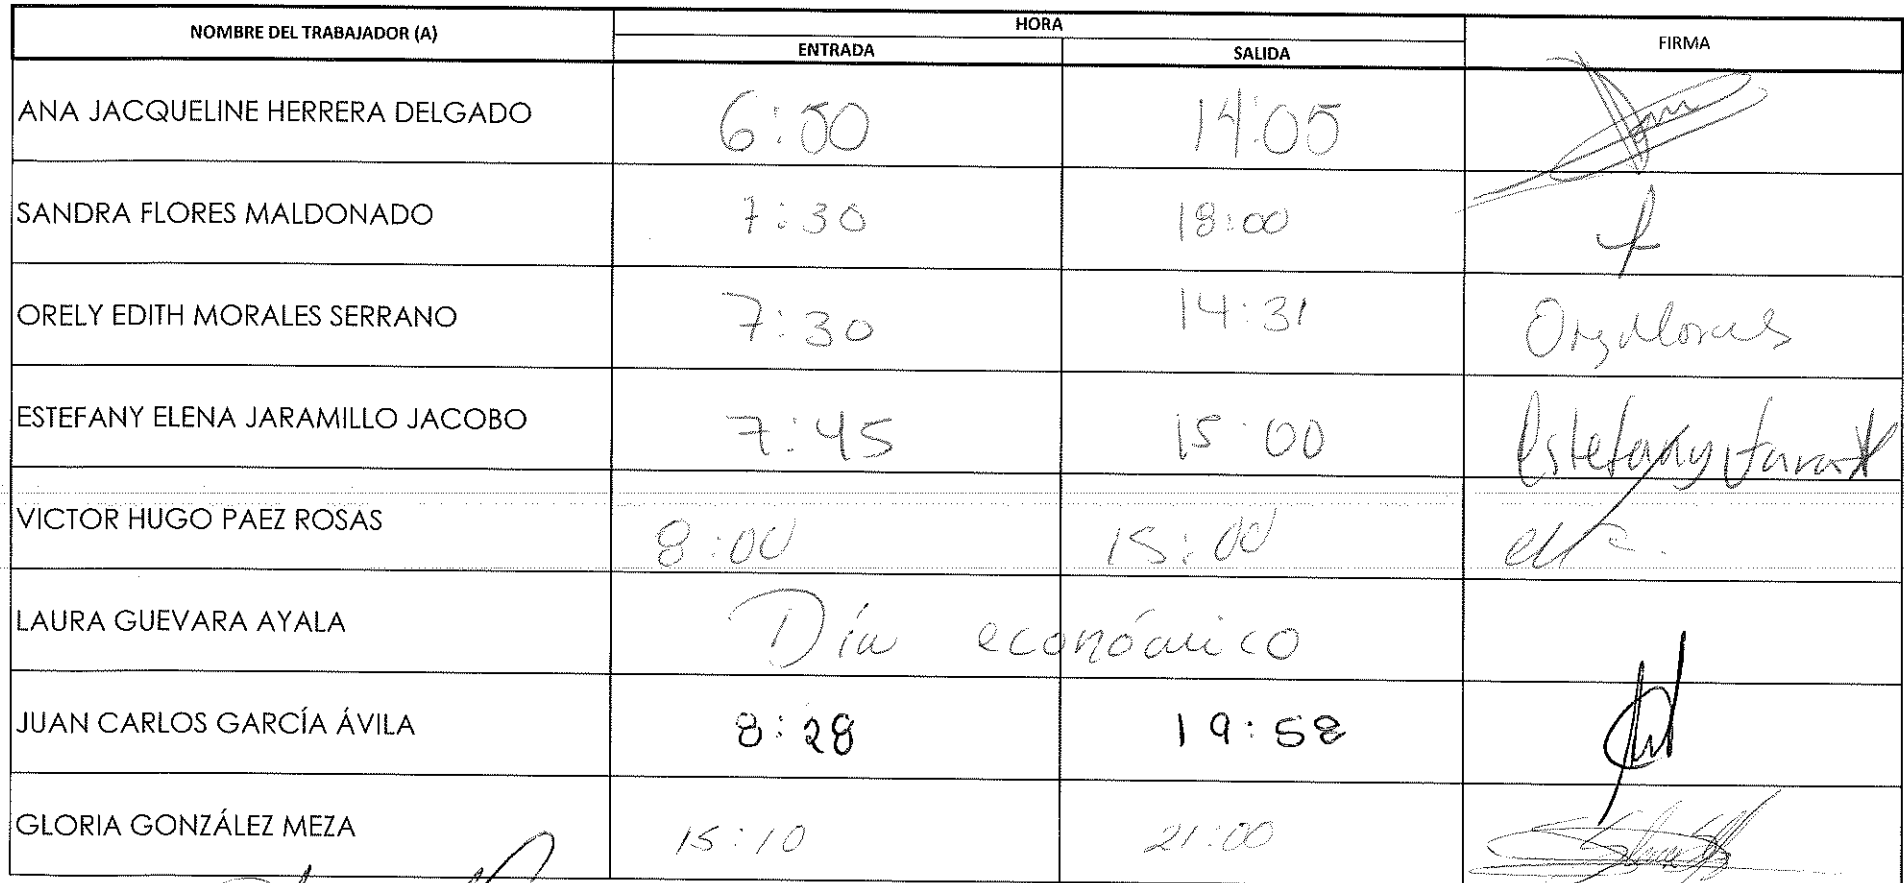 NOMBRE DEL TRABAJADOR (A) HORA FIRMA
ENTRADA SALIDA
ANA JACQUELINE HERRERA DELGADO 6:50 14:05
SANDRA FLORES MALDONADO 7:30 18:00
ORELY EDITH MORALES SERRANO 7:30 14:31
ESTEFANY ELENA JARAMILLO JACOBO 7:45 15:00
VICTOR HUGO PAEZ ROSAS 8:00 15:00
LAURA GUEVARA AYALA Día económico
JUAN CARLOS GARCÍA ÁVILA 8:28 19:58
GLORIA GONZÁLEZ MEZA 15:10 21:00